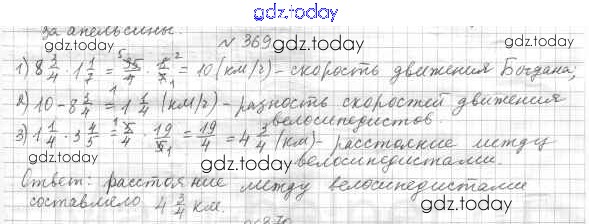 gdz.today
за апельсины.
gdz.today
gdz.today
№ 369 gdz.today
1) 8 3/4 · 1 1/7 = 35/4 · 8/7 = 10 (км/ч) - скорость движения Богдана;
2) 10 - 8 3/4 = 1 1/4 (км/ч) - разность скоростей движения
велосипедистов.
3) 1 1/4 · 3 4/5 = 5/4 · 19/5 = 19/4 = 4 3/4 (км) - расстояние между
gdz.today
gdz.today
велосипедистами.
Ответ: расстояние между велосипедистами
составило 4 3/4 км.
gdz.today